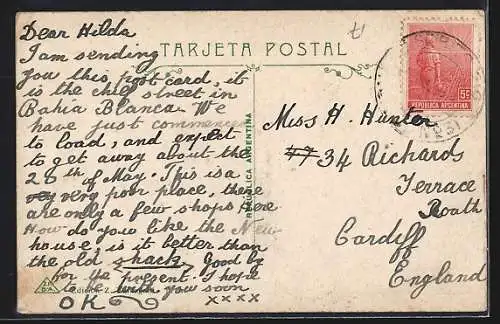 Dear Hilda
I am sending
you this post card, it
is the chief street in
Bahia Blanca. We
have just commenced
to load, and expect
to get away about the
28th of May. This is a
very very poor place, there
are only a few shops here
How do you like the New
house, is it better than
the old shack. Good by
for ye present. I hope
to be with you soon
OK
xxxx
TARJETA POSTAL
REPUBLICA ARGENTINA
REPUBLICA ARGENTINA
5c
Miss H. Hunter
77 34 Richards
Terrace
Roath
Cardiff
England